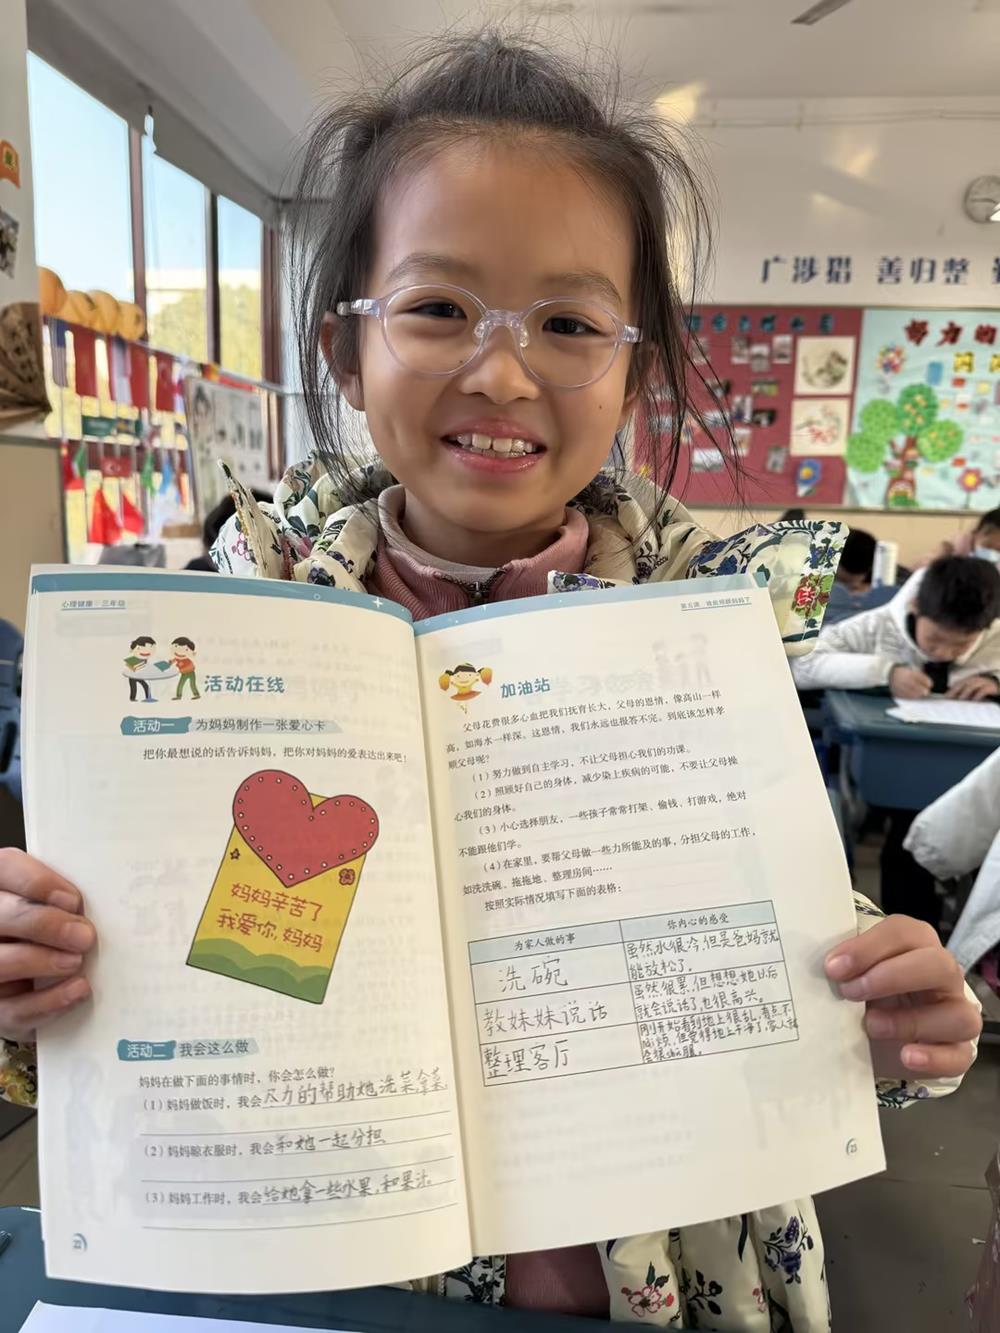 广涉猎 善归整
努力的
心理健康 三年级
活动在线
活动一 为妈妈制作一张爱心卡
把你最想说的话告诉妈妈,把你对妈妈的爱表达出来吧!
妈妈辛苦了
我爱你,妈妈
活动二 我会这么做
妈妈在做下面的事情时,你会怎么做?
(1)妈妈做饭时,我会尽力的帮助她洗菜,拿菜。
(2)妈妈晾衣服时,我会和她一起分担
(3)妈妈工作时,我会给她拿一些水果,和果汁。
22
第五课 我能照顾妈妈了
加油站
父母花费很多心血把我们抚育长大,父母的恩情,像高山一样
高,如海水一样深。这恩情,我们永远也报答不完。到底该怎样孝
顺父母呢?
(1)努力做到自主学习,不让父母担心我们的功课。
(2)照顾好自己的身体,减少染上疾病的可能,不要让父母操
心我们的身体。
(3)小心选择朋友,一些孩子常常打架、偷钱、打游戏,绝对
不能跟他们学。
(4)在家里,要帮父母做一些力所能及的事,分担父母的工作,
如洗洗碗、拖拖地、整理房间……
按照实际情况填写下面的表格:
为家人做的事 你内心的感受
洗碗
虽然水很冷,但是爸妈就
能放松了。
教妹妹说话
虽然很累,但想想她以后
就会说话了也很高兴。
整理客厅
刚开始看到地上很乱,有点不
耐烦,但觉得地上干净了,家人就
会很舒服。
23